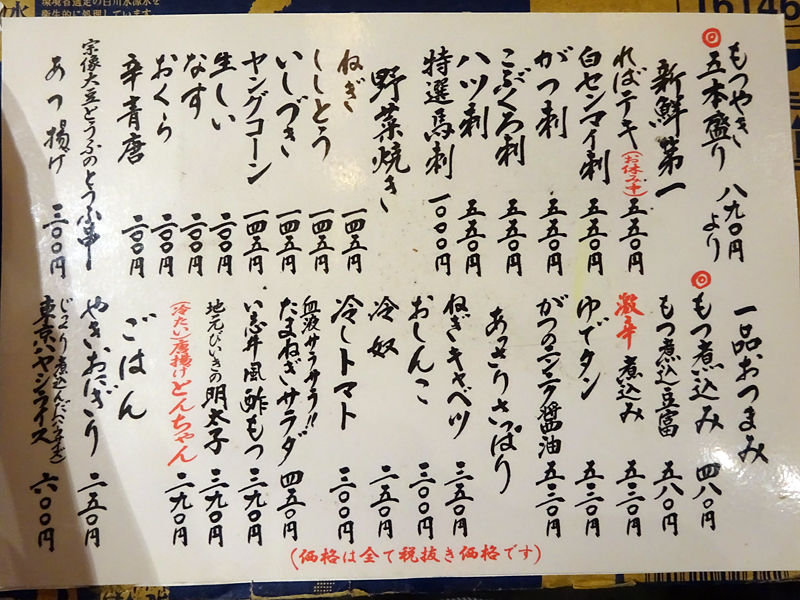 もつやき
◎五本盛り 八九〇円より
新鮮第一
ればテキ(お休み中) 五五〇円
白センマイ刺 五五〇円
がつ刺 五五〇円
こぶくろ刺 五五〇円
ハツ刺 五五〇円
特選馬刺 一〇〇〇円
野菜焼き
ねぎ 一四五円
ししとう 一四五円
いしづき 一四五円
ヤングコーン 一四五円
生しい 二〇〇円
なす 二〇〇円
おくら 二〇〇円
辛青唐 二〇〇円
宗像大豆どうふのとうふ中
あつ揚げ 三〇〇円
一品おつまみ
◎もつ煮込み 四八〇円
もつ煮込豆富 五八〇円
激辛煮込み 五三〇円
ゆでタン 五三〇円
がつのニンニク醤油 五三〇円
あっさりさっぱり
ねぎキャベツ 三五〇円
おしんこ 三〇〇円
冷奴 二五〇円
冷しトマト 三〇〇円
血液サラサラ!!
たまねぎサラダ 四五〇円
い志井風酢もつ 三九〇円
地元びいきの明太子 三九〇円
(冷たい)唐揚げとんちゃん 二九〇円
ごはん
やきおにぎり 二五〇円
じっくり煮込んだ
東京ハヤシライス 六〇〇円
(価格は全て税抜き価格です)
16146